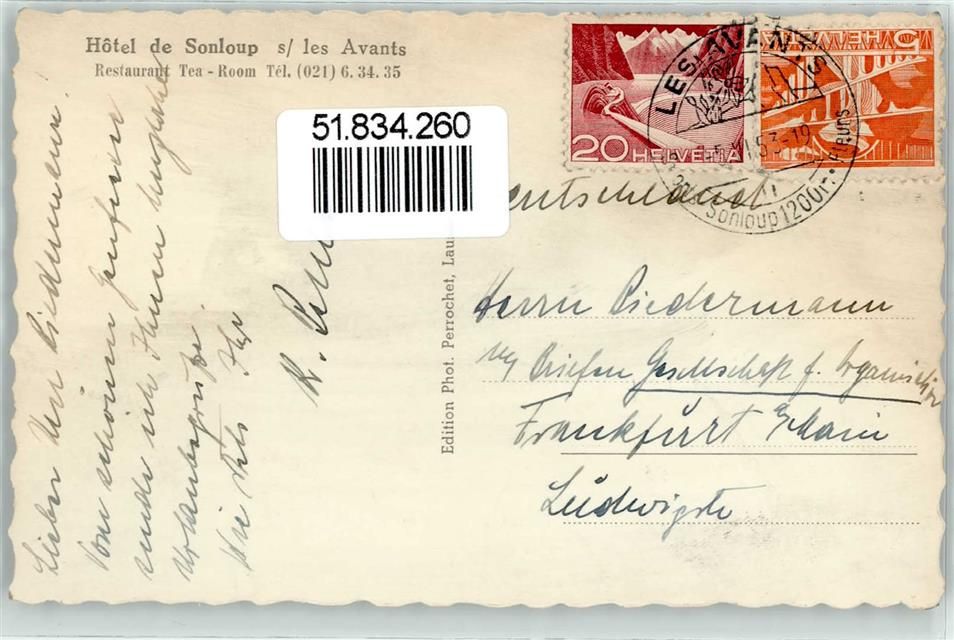 Hôtel de Sonloup s/ les Avants
Restaurant Tea - Room Tél. (021) 6. 34. 35
51.834.260
20 HELVETIA
5 HELVETIA
LES AVANTS
Sonloup 1200m. Fleurs
Edition Phot. Perrochet, Lau
Lieber Herr Biedermann.
Vom schönen Genfersee
sende ich Ihnen
Urlaubsgrüsse.
Wie stets Ihr
K.
Deutschland
Herrn Biedermann
Gesellschaft f. Organisation
Frankfurt Main
Ludwigstr